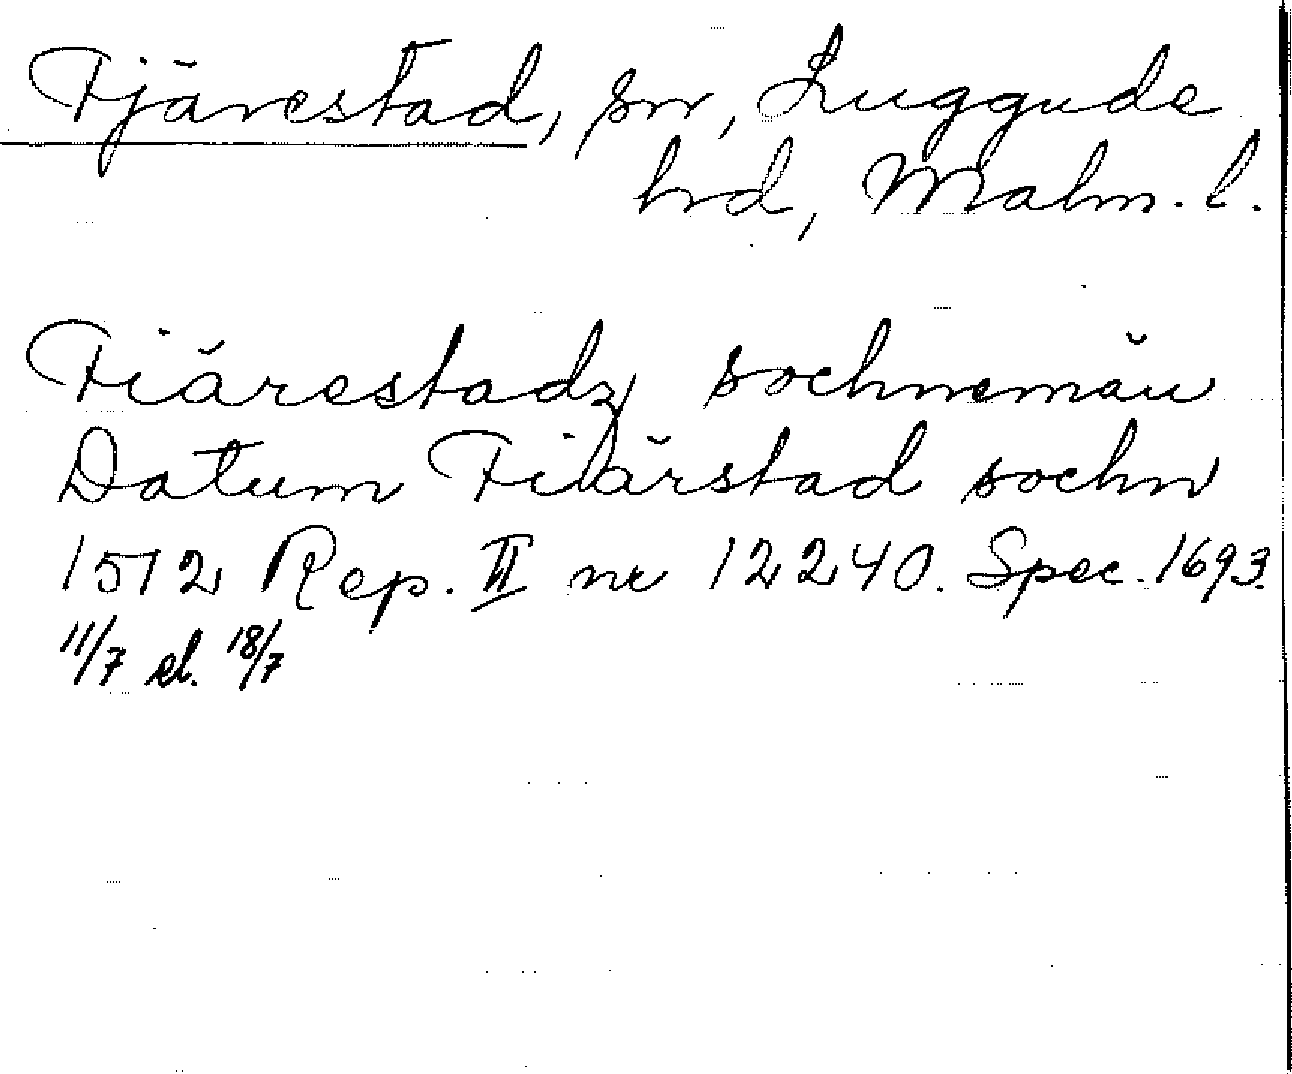 Fjärestad, sn, Luggude
hd, Malm. l.
Fiärestadz sochnemän
Datum Fiiärstad sochn
1512 Rep. II nr 12240. Spec. 1693.
11/7 el. 18/7